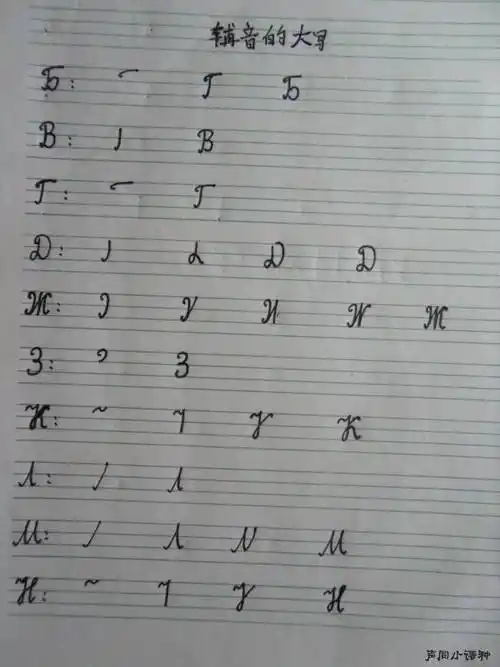 辅音的大写
Б: Г Б
В: В
Г: Г
Д: Д Д
Ж: И Ж
З: З
К: К
Л: Л
М: Л М
Н: Н
声同小语种